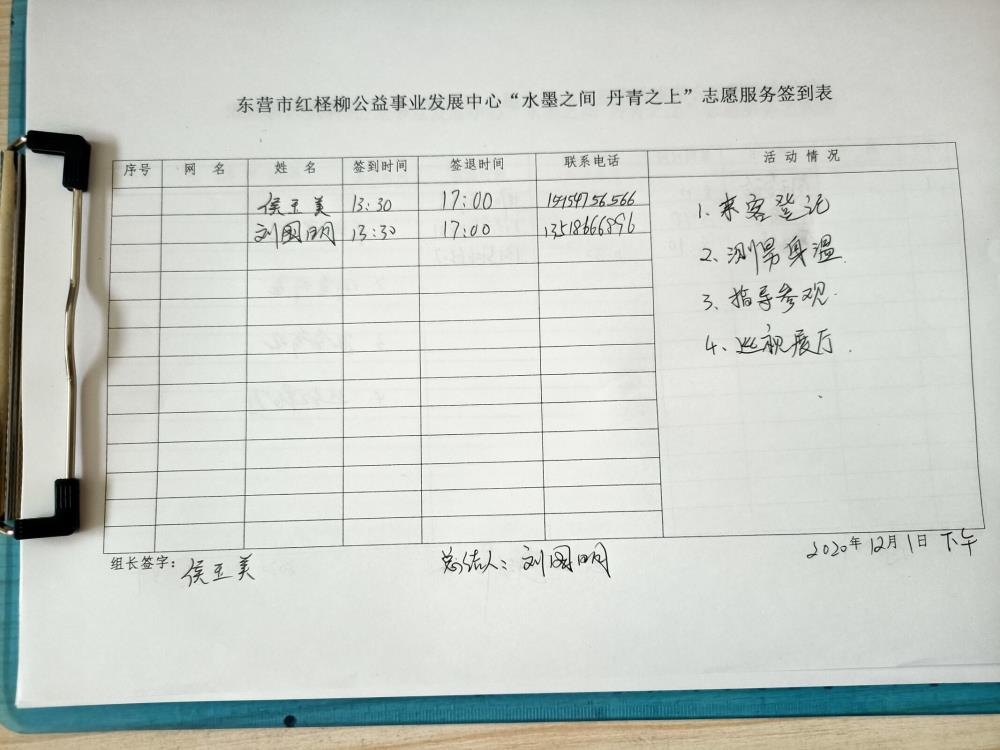 东营市红柽柳公益事业发展中心“水墨之间 丹青之上”志愿服务签到表
序号 网 名 姓 名 签到时间 签退时间 联系电话 活 动 情 况
侯玉美 13:30 17:00 15154756566
刘国明 13:30 17:00 13518666896
1. 来客登记
2、测男身温.
3、指导参观.
4、巡视展厅.
组长签字: 侯玉美 总结人: 刘国明 2020年12月1日 下午